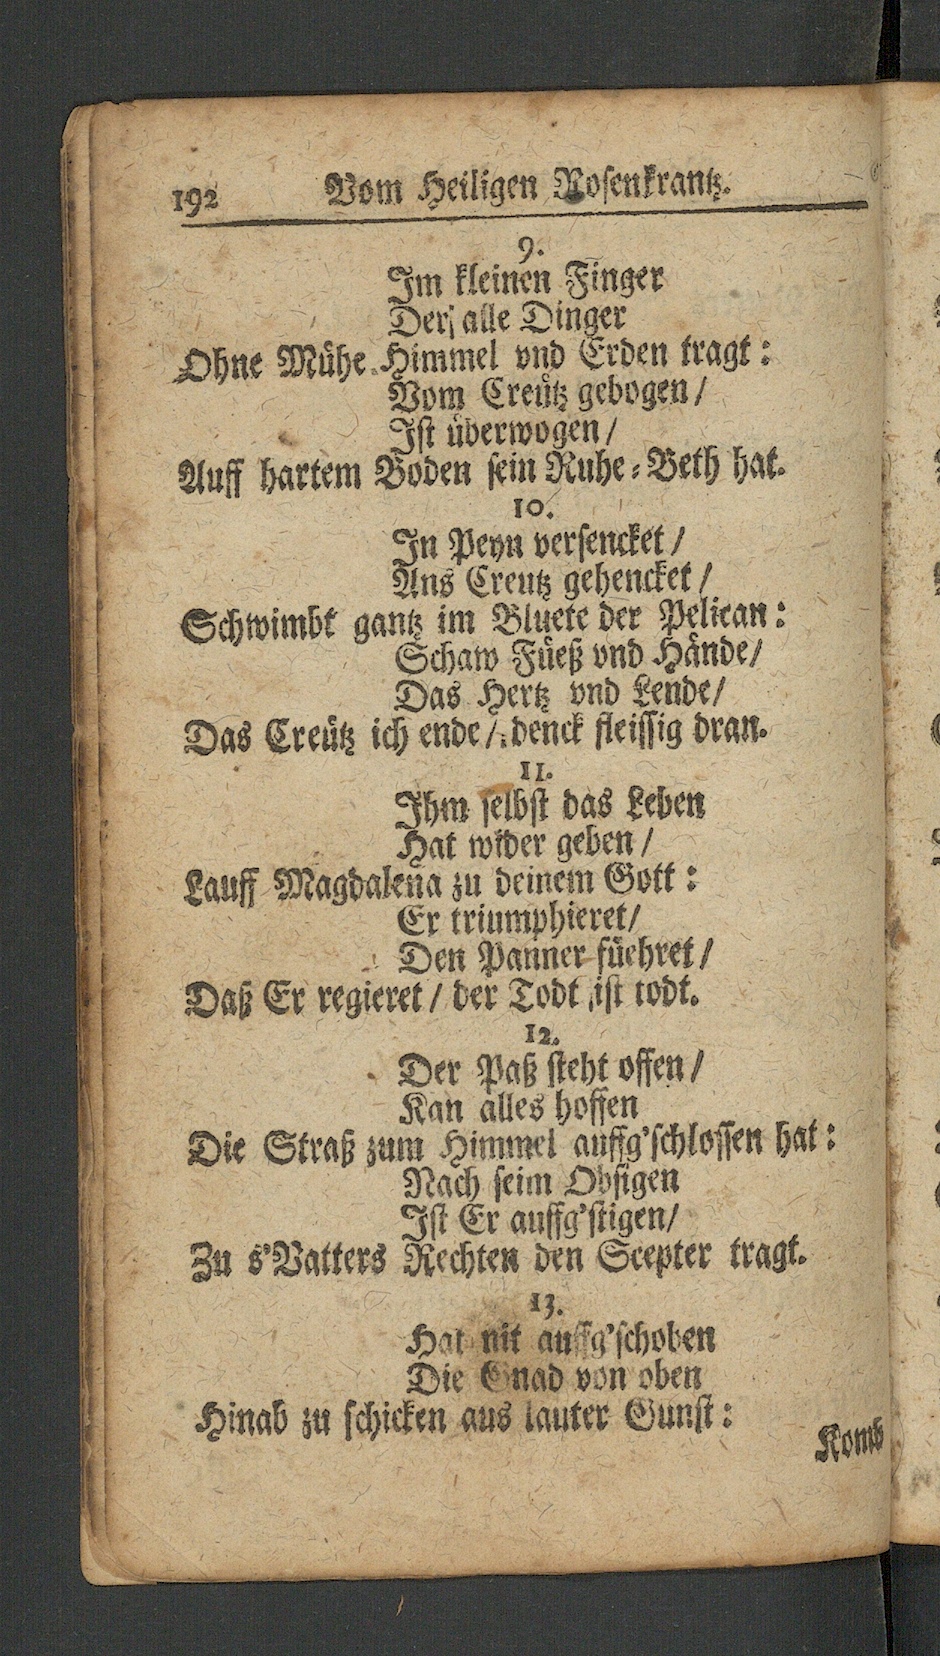 192 Vom Heiligen Rosenkrantz.
9.
Im kleinen Finger
Der alle Dinger
Ohne Mühe Himmel vnd Erden tragt:
Vom Creütz gebogen/
Ist überwogen/
Auff hartem Boden sein Ruhe-Beth hat.
10.
In Peyn versencket/
Ans Creutz gehencket/
Schwimbt gantz im Bluete der Pelican:
Schaw Füeß vnd Hände/
Das Hertz vnd Lende/
Das Creütz ich ende/ denck fleissig dran.
11.
Ihm selbst das Leben
Hat wider geben/
Lauff Magdalena zu deinem Gott:
Er triumphieret/
Den Panner füehret/
Daß Er regieret/ der Todt ist todt.
12.
Der Paß steht offen/
Kan alles hoffen
Die Straß zum Himmel auffg'schlossen hat:
Nach seim Obsigen
Ist Er auffg'stigen/
Zu s'Vatters Rechten den Scepter tragt.
13.
Hat nit auffg'schoben
Die Gnad von oben
Hinab zu schicken aus lauter Gunst:
Komb